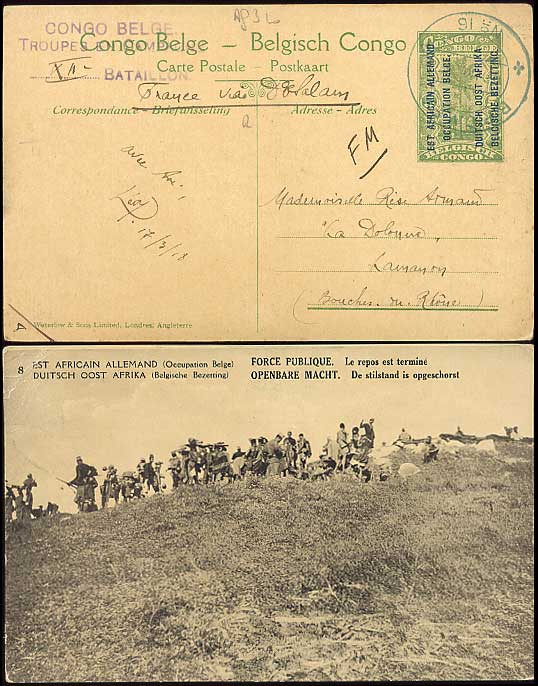 CONGO BELGE
TROUPES
XII
BATAILLON.
Congo Belge – Belgisch Congo
Carte Postale - Postkaart
France via
Correspondance - Briefwisseling
Adresse - Adres
FM
EST AFRICAIN ALLEMAND
OCCUPATION BELGE.
DUITSCH OOST AFRIKA
BELGISCHE BEZETTING.
CONGO BELGE
BELGISCH CONGO
avec
Léa
17/3/18
Mademoiselle Rose Armand
Lamanon
(Bouches du Rhône)
Waterlow & Sons Limited, Londres, Angleterre.
8
EST AFRICAIN ALLEMAND (Occupation Belge)
DUITSCH OOST AFRIKA (Belgische Bezetting)
FORCE PUBLIQUE. Le repos est terminé
OPENBARE MACHT. De stilstand is opgeschorst